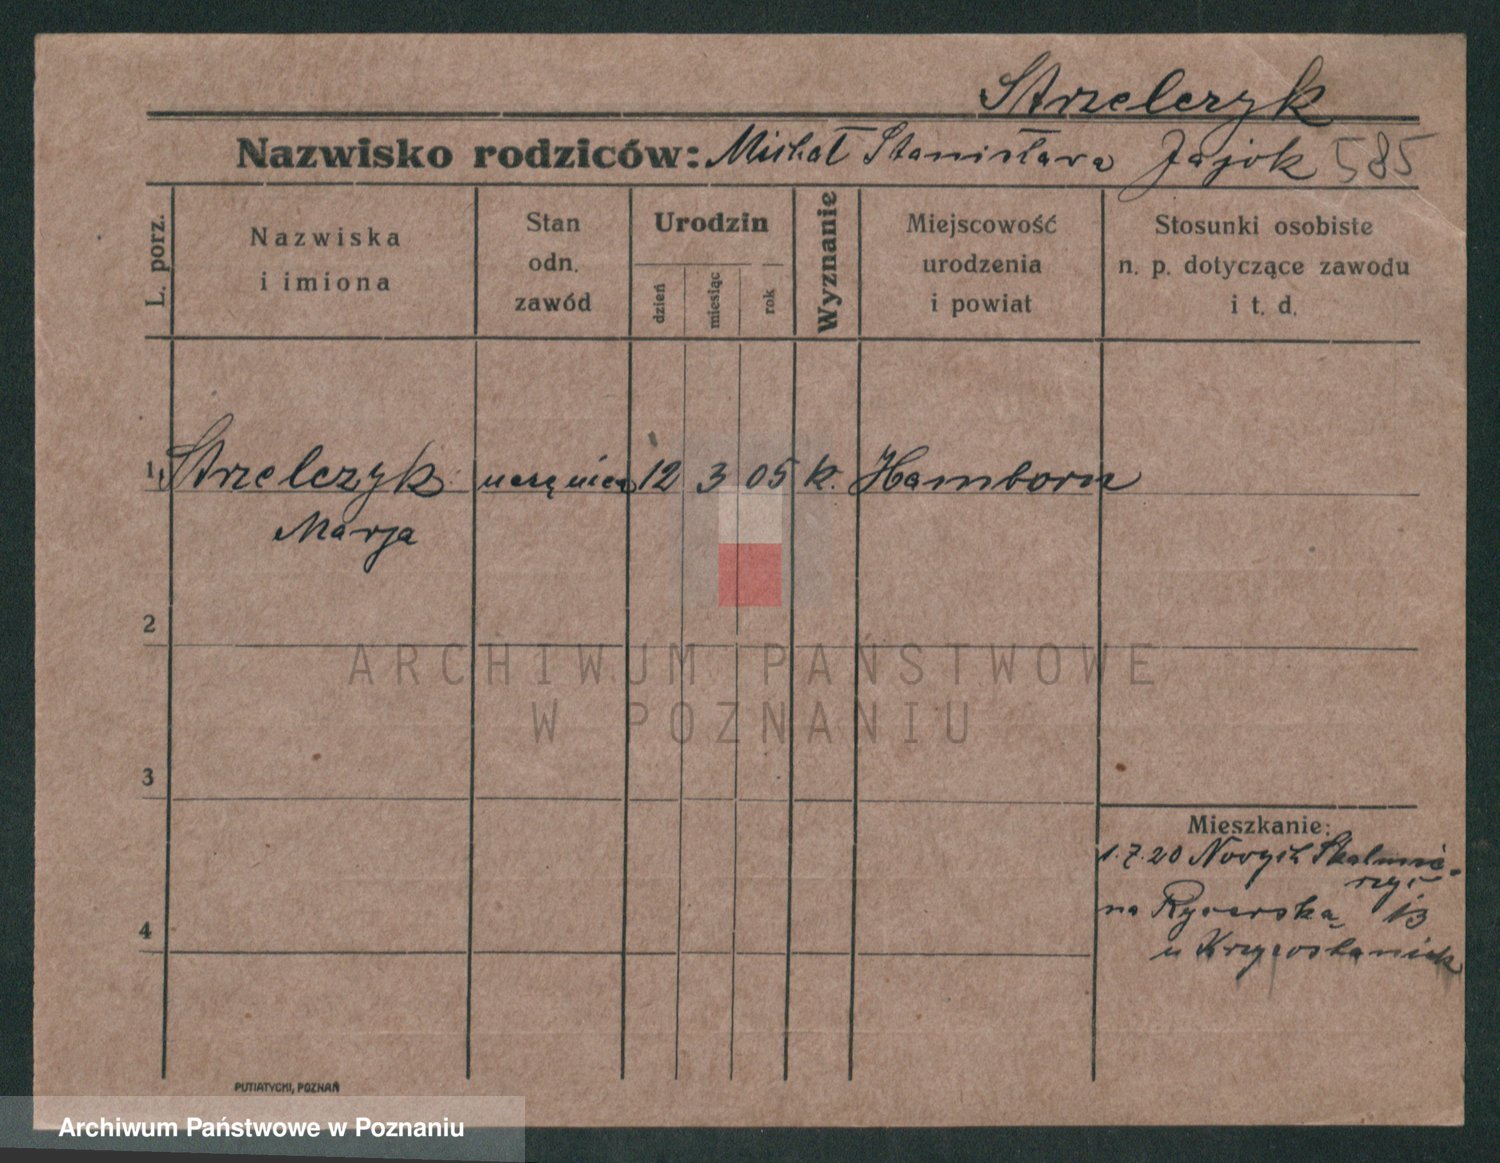 Strzelczyk
Nazwisko rodziców: Michał Stanisława Zajok 585
L. porz.
Nazwiska
i imiona
Stan
odn.
zawód
Urodzin
dzień
miesiąc
rok
Wyznanie
Miejscowość
urodzenia
i powiat
Stosunki osobiste
n. p. dotyczące zawodu
i t. d.
1. Strzelczyk uczenica 12 3 05 k. Hamborn
Marja
2
ARCHIWUM PAŃSTWOWE
W POZNANIU
3
Mieszkanie:
1.7.20 Nowych Skalmie-
rzyc
na Rycerską 13
4
u
PUTIATYCKI, POZNAŃ
Archiwum Państwowe w Poznaniu